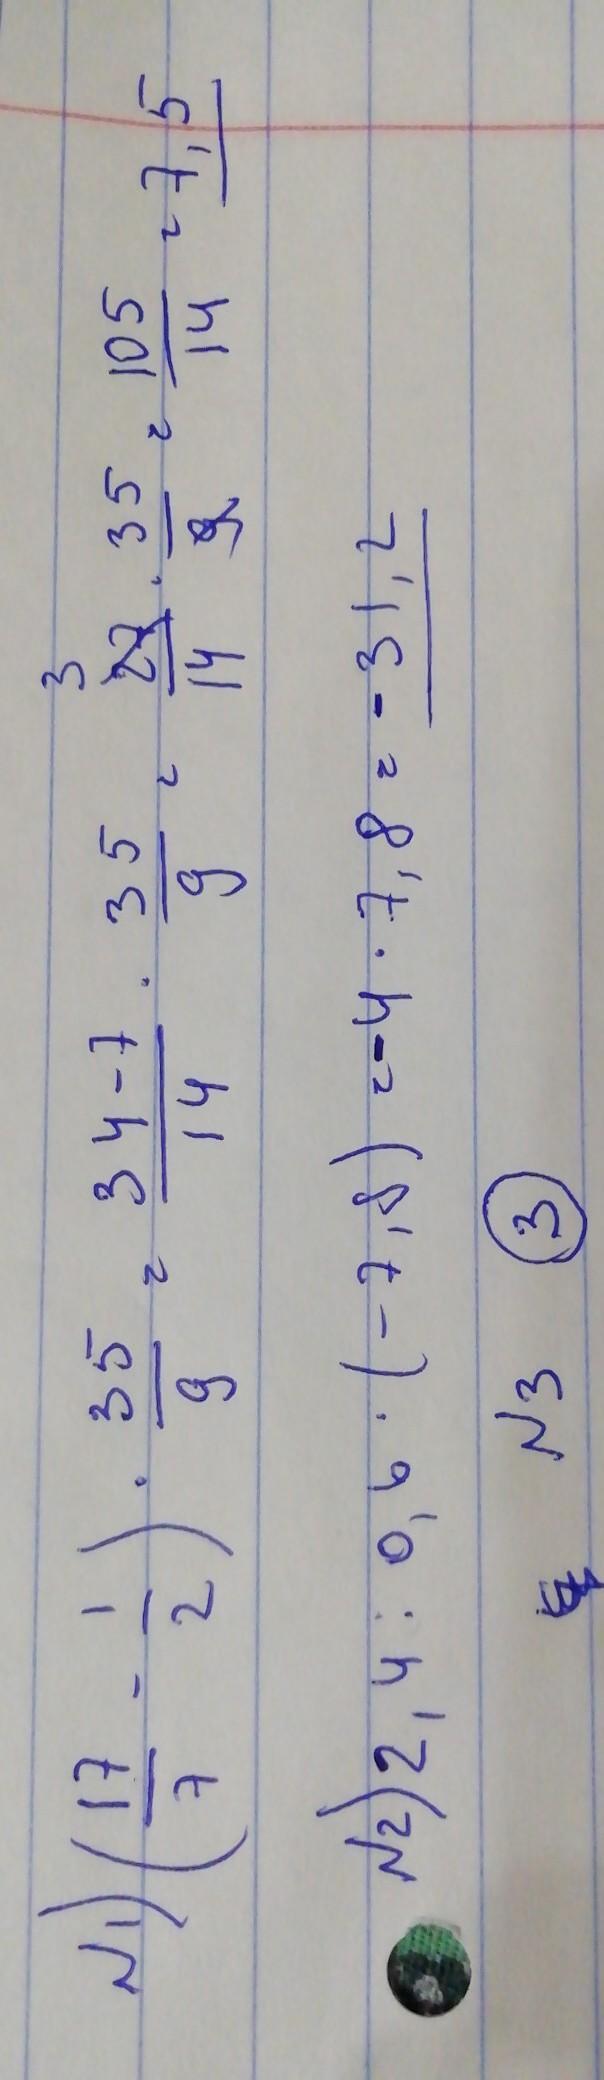 N1) (17/7 - 1/2) · 35/9 = 34-7/14 · 35/9 = 3 27/14 · 35/9 = 105/14 = 7,5
N2) 2,4 : 0,6 · (-7,8) = -4 · 7,8 = -31,2
N3 3